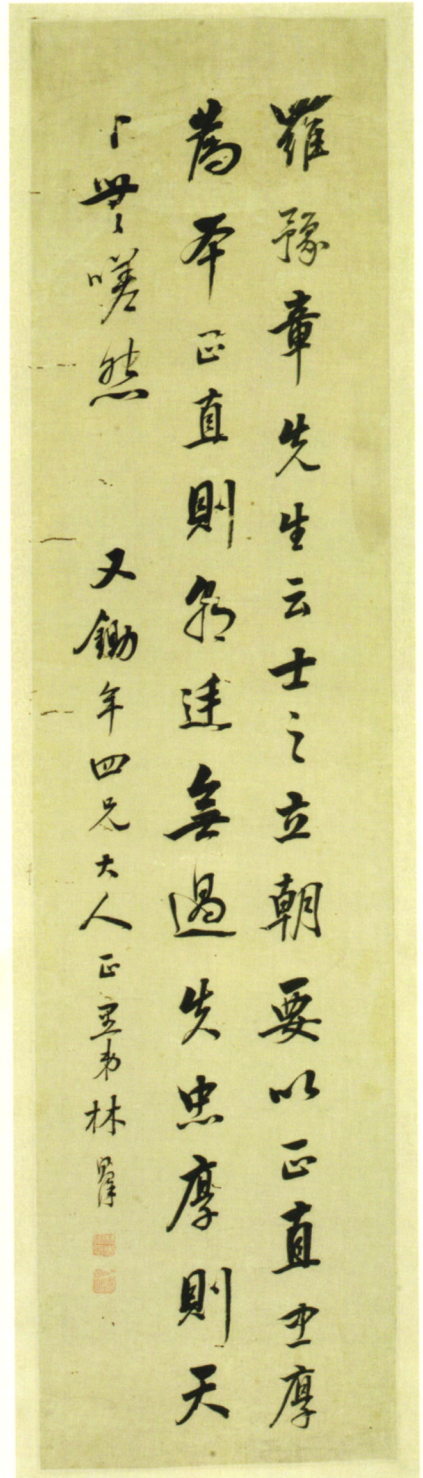 羅豫章先生云士之立朝要以正直忠厚
為本正直則朝廷無過失忠厚則天
下無嗟怨
又鋤年四兄大人正愚弟林